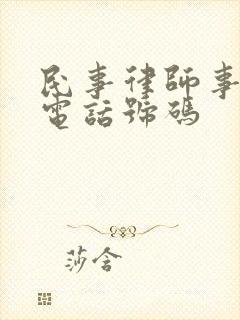 民事律師事
電話號碼
莎含